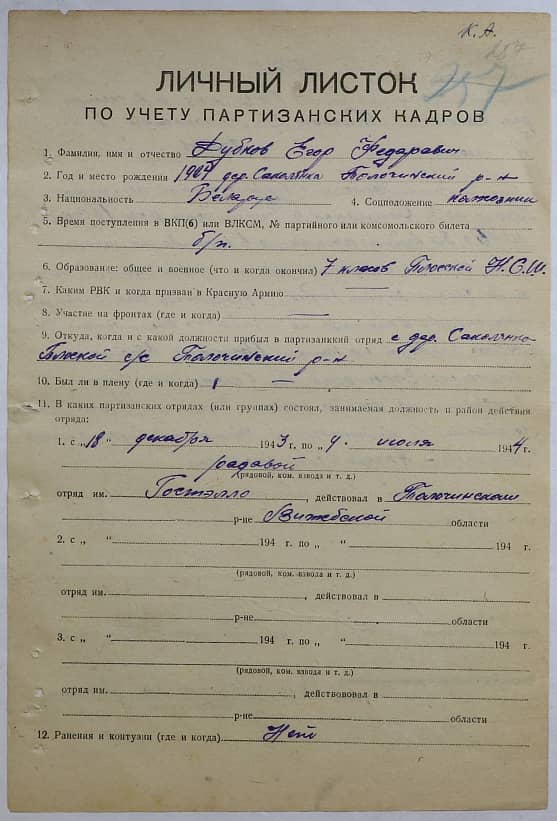 К. А.
257
257
ЛИЧНЫЙ ЛИСТОК
ПО УЧЕТУ ПАРТИЗАНСКИХ КАДРОВ
1. Фамилия, имя и отчество Дубков Егор Федаравич
2. Год и место рождения 1904 дер. Саколинка Толочинский р-н
3. Национальность Беларус 4. Соцположение
5. Время поступления в ВКП(б) или ВЛКСМ, № партийного или комсомольского билета
б/п.
6. Образование: общее и военное (что и когда окончил) 7 класов Плоской Н.С.Ш.
7. Каким РВК и когда призван в Красную Армию —
8. Участие на фронтах (где и когда) —
9. Откуда, когда и с какой должности прибыл в партизанккий отряд с дер. Саколинка
Плоской с/с Толочинский р-н
10. Был ли в плену (где и когда) —
11. В каких партизанских отрядах (или группах) состоял, занимаемая должность и район действия
отряда:
1. с „18" декабря 1943 г. по „4" июля 1944 г.
радавой
(рядовой, ком. взвода и т. д.)
отряд им. Гостэлло, действовал в Талочинском
р-не Витебской области
2. с „ “ 194 г. по „ “ 194 г.
(рядовой, ком. взвода и т. д.)
отряд им. , действовал в
р-не области
3. с „ “ 194 г. по „ “ 194 г.
(рядовой, ком. взвода и т. д.)
отряд им. , действововал в
р-не области
12. Ранения и контузии (где и когда) Нет